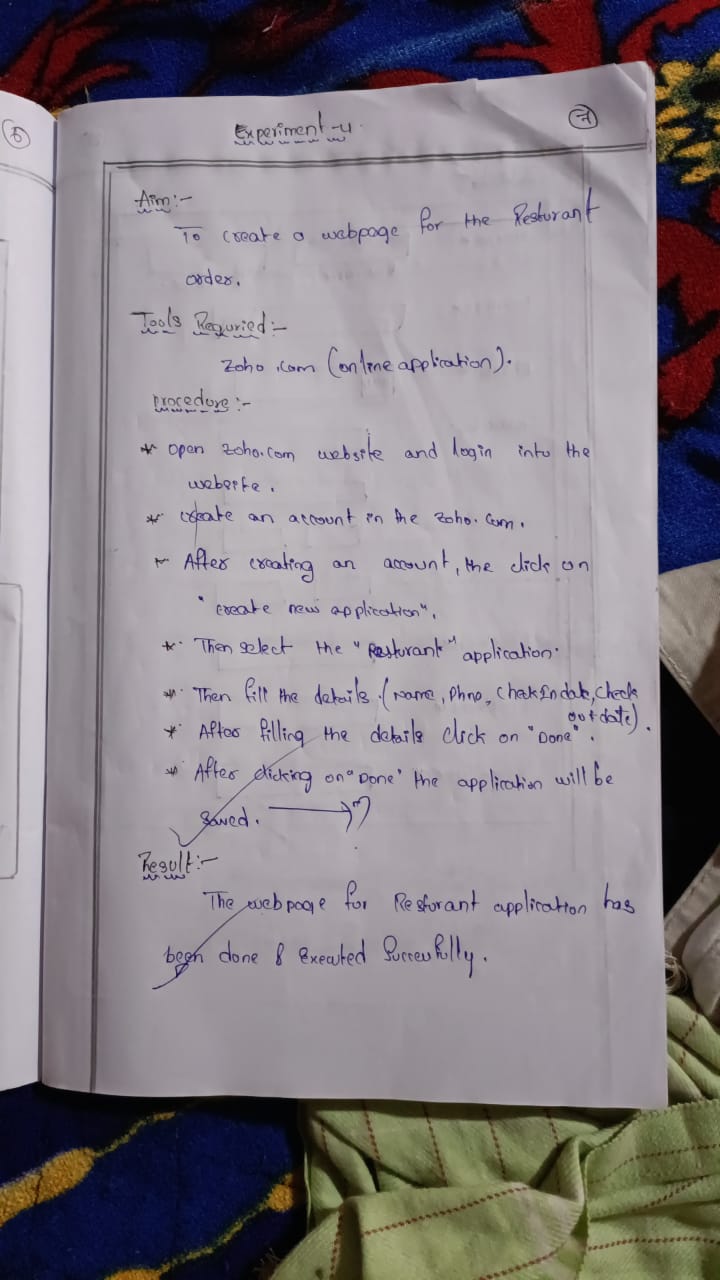 Experiment-4
Aim:-
To create a webpage for the Resturant
order.
Tools Requried:-
Zoho.com (online application).
procedure:-
* open zoho.com website and login into the
website.
* create an account in the zoho.com.
* After creating an account, the click on
"create new application".
* Then select the "Resturant" application.
* Then fill the details (Name, phno, check In date, check
out date).
* After filling the details click on "Done".
* After clicking on "Done" the application will be
saved.
Result:-
The webpage for Resturant application has
been done & Executed Successfully.